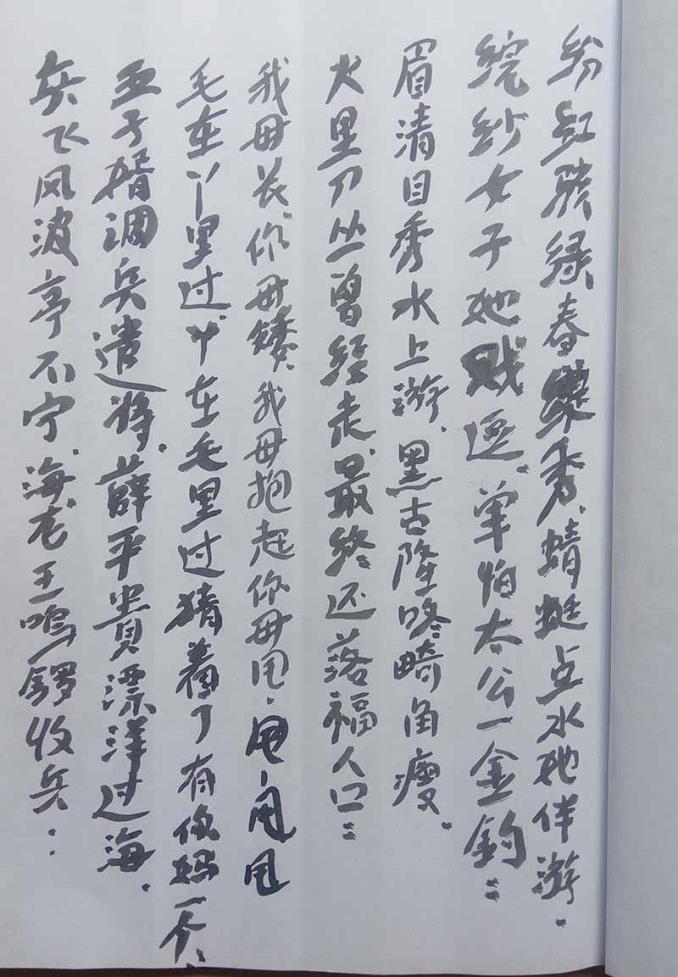 粉红孩绿春秀、蜻蜓点水她伴游。
浣纱女子她贱逗、单怕太公一金钩::
眉清目秀水上游、黑古隆咚畸角瘦。
火里刀丛曾经走、最终还落福人口::
我母长、你母矮、我母抱起你母甩、甩、甩甩
毛在丫里过、丫在毛里过猜着了有你妈一个、
五子婿调兵遣将、薛平贵漂洋过海、
兵飞风波亭不宁、海龙王鸣锣收兵: